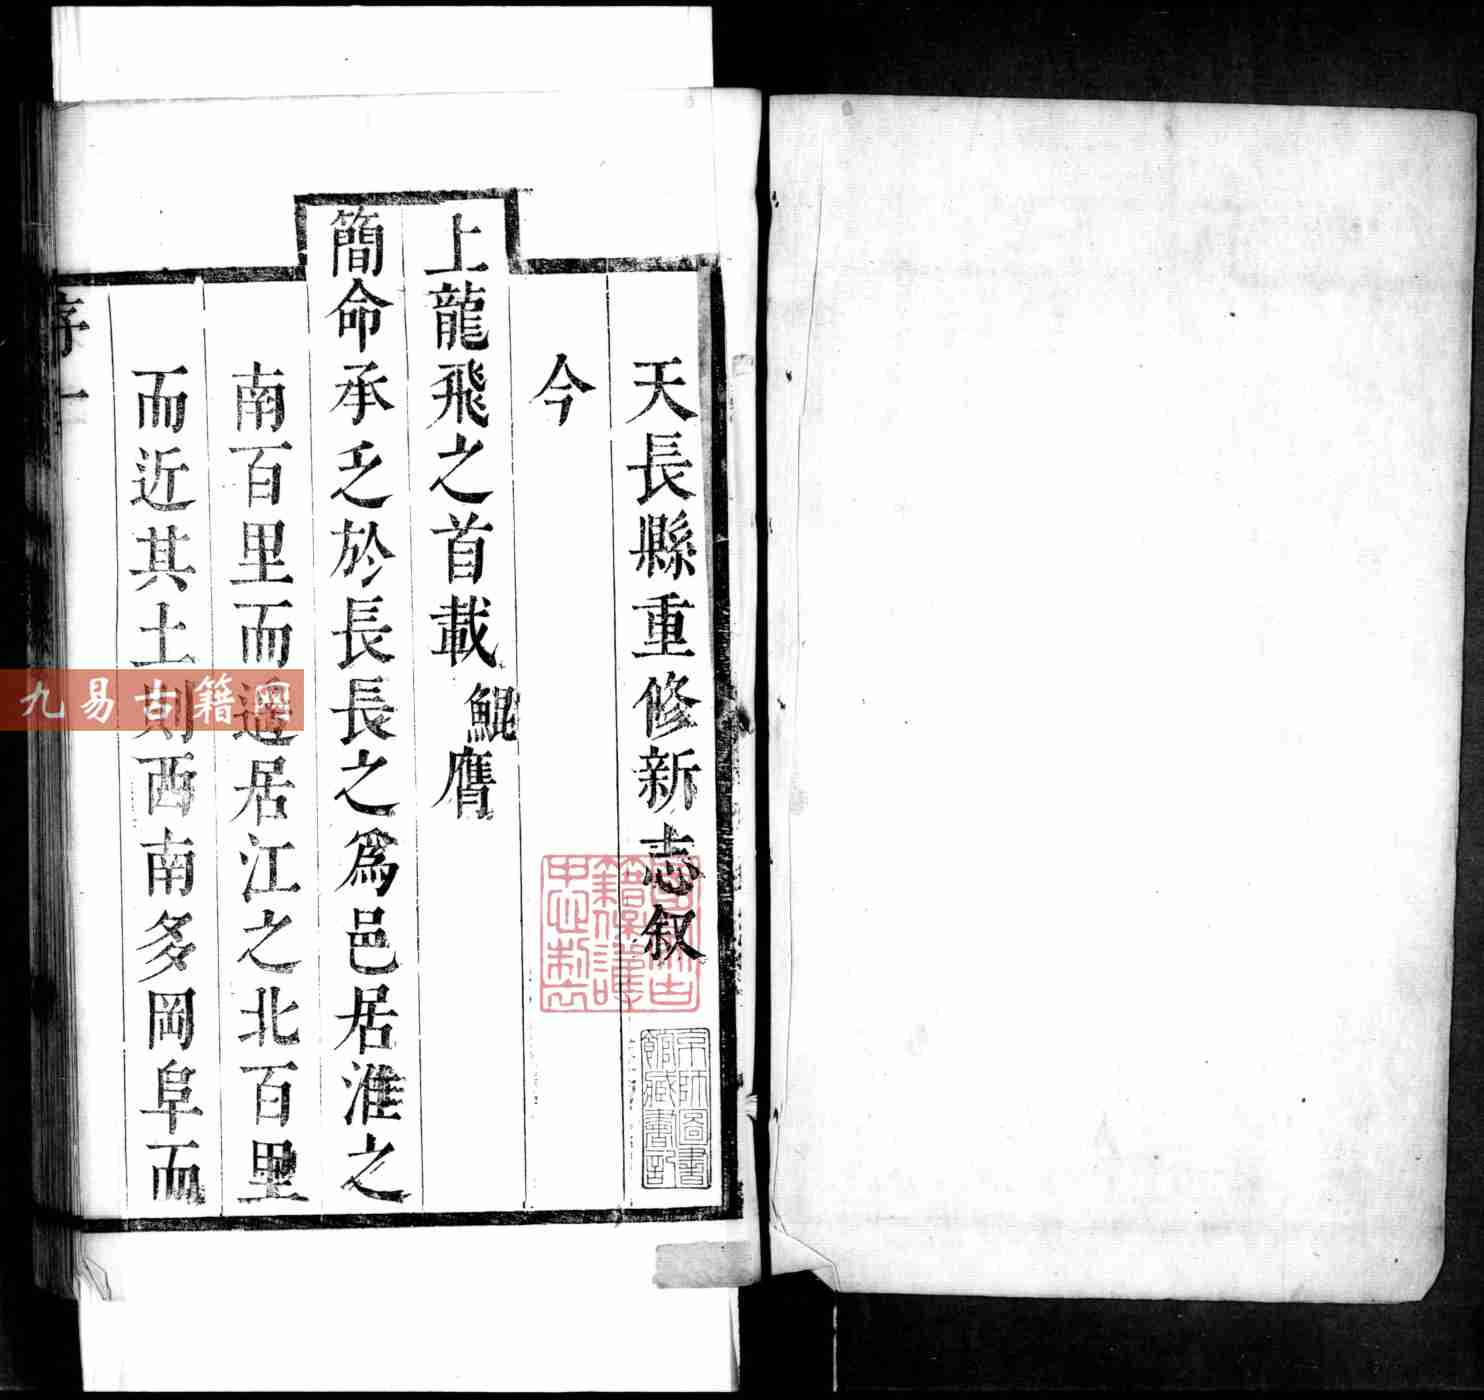 天長縣重修新志叙
今
上龍飛之首載鯤膺
簡命承乏於長長之爲邑居淮之
南百里而遥居江之北百里
而近其土則西南多岡阜而
序一
九易古籍网
京師圖書館藏書記